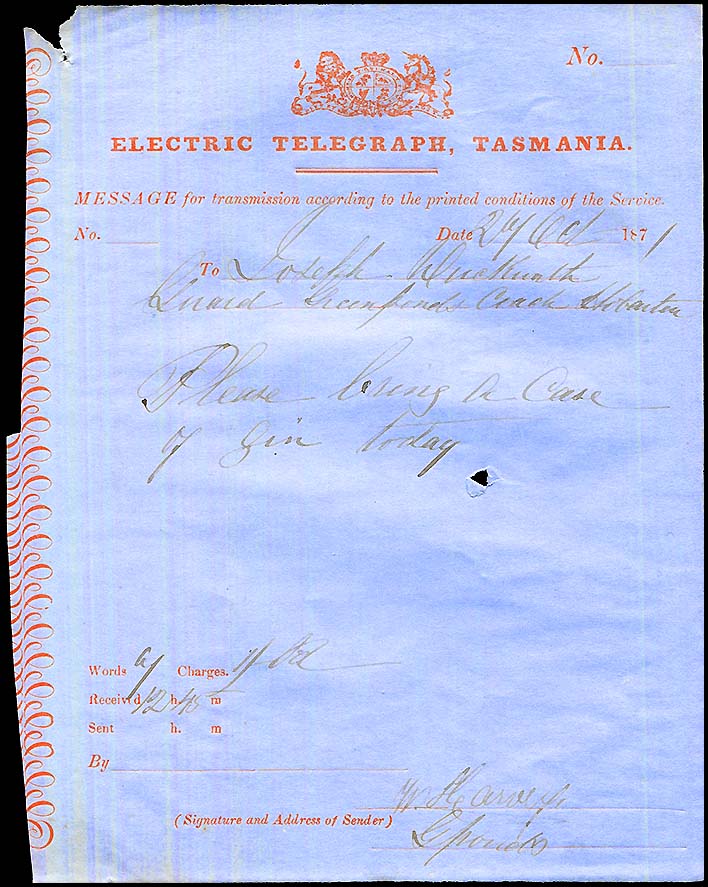 No.
ELECTRIC TELEGRAPH, TASMANIA.
MESSAGE for transmission according to the printed conditions of the Service.
No. Date 27 Oct 1871
To Joseph
Guard Greenponds Coach Hobarton
Please bring a Case
of Gin today
Words Charges. 1/
Received 12 h. 45 m
Sent h. m
By
W. Harvey
(Signature and Address of Sender)
G ponds